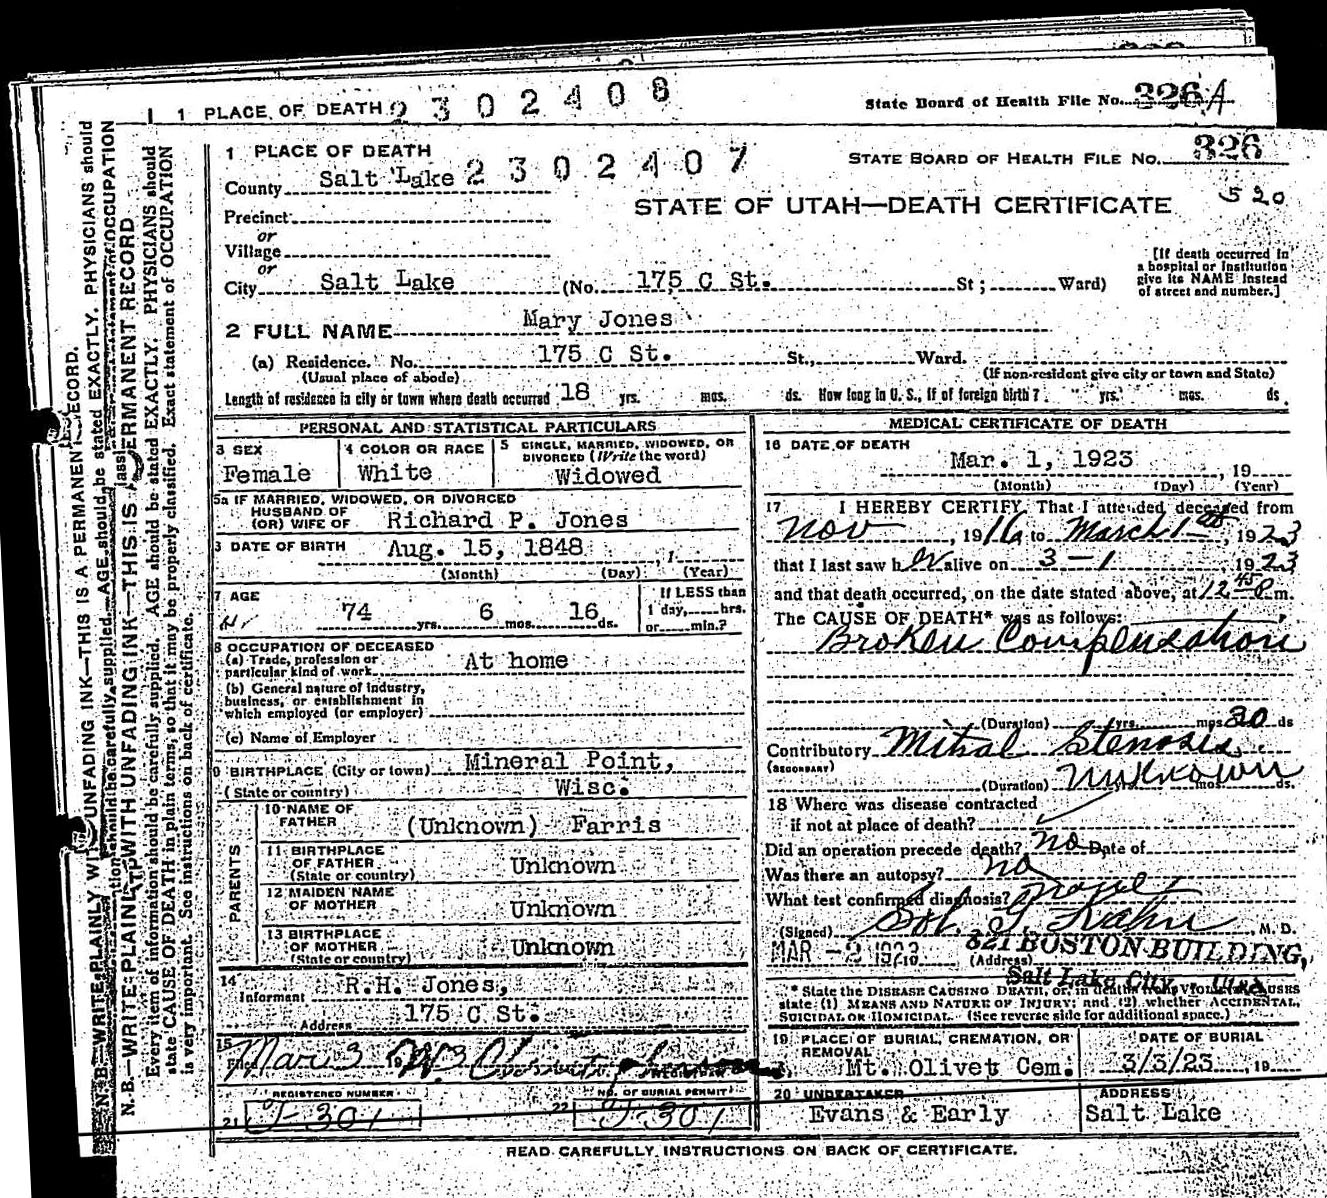 1 PLACE OF DEATH 2302408 State Board of Health File No. 326A
1 PLACE OF DEATH 2302407 STATE BOARD OF HEALTH FILE NO. 326
County Salt Lake
520
STATE OF UTAH—DEATH CERTIFICATE
Precinct
or
Village
or
City Salt Lake (No. 175 C St. St; Ward)
[If death occurred in
a hospital or Institution
give its NAME instead
of street and number.]
2 FULL NAME Mary Jones
(a) Residence. No. 175 C St. St., Ward.
(Usual place of abode) (If non-resident give city or town and State)
Length of residence in city or town where death occurred 18 yrs. mos. ds. How long in U. S., if of foreign birth? yrs. mos. ds.
PERSONAL AND STATISTICAL PARTICULARS
3 SEX
Female
4 COLOR OR RACE
White
5 SINGLE, MARRIED, WIDOWED, OR
DIVORCED (Write the word)
Widowed
5a IF MARRIED, WIDOWED, OR DIVORCED
HUSBAND OF
(OR) WIFE OF Richard P. Jones
DATE OF BIRTH Aug. 15, 1848 , 1
(Month) (Day) (Year)
7 AGE
74 yrs. 6 mos. 16 ds.
If LESS than
1 day, hrs.
or min.?
8 OCCUPATION OF DECEASED
(a) Trade, profession or
particular kind of work At home
(b) General nature of industry,
business, or establishment in
which employed (or employer)
(c) Name of Employer
9 BIRTHPLACE (City or town) Mineral Point,
(State or country) Wisc.
PARENTS
10 NAME OF
FATHER (Unknown) Farris
11 BIRTHPLACE
OF FATHER
(State or country) Unknown
12 MAIDEN NAME
OF MOTHER Unknown
13 BIRTHPLACE
OF MOTHER
(State or country) Unknown
14
Informant R.H. Jones,
Address 175 C St.
15
Filed Mar 3
REGISTERED NUMBER
21 J-301
NO. OF BURIAL PERMIT
22 J-301
MEDICAL CERTIFICATE OF DEATH
16 DATE OF DEATH
Mar. 1, 1923 , 19
(Month) (Day) (Year)
17 I HEREBY CERTIFY, That I attended deceased from
Nov , 1916, to March 1st, 1923
that I last saw her alive on 3-1 1923
and that death occurred, on the date stated above, at 12 45 P m.
The CAUSE OF DEATH* was as follows:
Broken Compensation
(Duration) yrs. mos 30 ds
Contributory Mitral Stenosis
(SECONDARY)
(Duration) Unknown mos. ds.
18 Where was disease contracted
if not at place of death?
Did an operation precede death? no Date of
Was there an autopsy? no
What test confirmed diagnosis? none
(Signed) Sol. G. Kahn, M. D.
MAR -2 1923 (Address) 821 BOSTON BUILDING,
Salt Lake City, Utah
* State the DISEASE CAUSING DEATH, or, in deaths from VIOLENT CAUSES
state (1) MEANS AND NATURE OF INJURY; and (2) whether ACCIDENTAL,
SUICIDAL OR HOMICIDAL. (See reverse side for additional space.)
19 PLACE OF BURIAL, CREMATION, OR
REMOVAL
Mt. Olivet Cem.
DATE OF BURIAL
3/3/23 , 19
20 UNDERTAKER
Evans & Early
ADDRESS
Salt Lake
READ CAREFULLY INSTRUCTIONS ON BACK OF CERTIFICATE.
N. B.—WRITE PLAINLY WITH UNFADING INK—THIS IS A PERMANENT RECORD
Every item of information should be carefully supplied. AGE should be stated EXACTLY. PHYSICIANS should
state CAUSE OF DEATH in plain terms, so that it may be properly classified. Exact statement of OCCUPATION
is very important. See instructions on back of certificate.